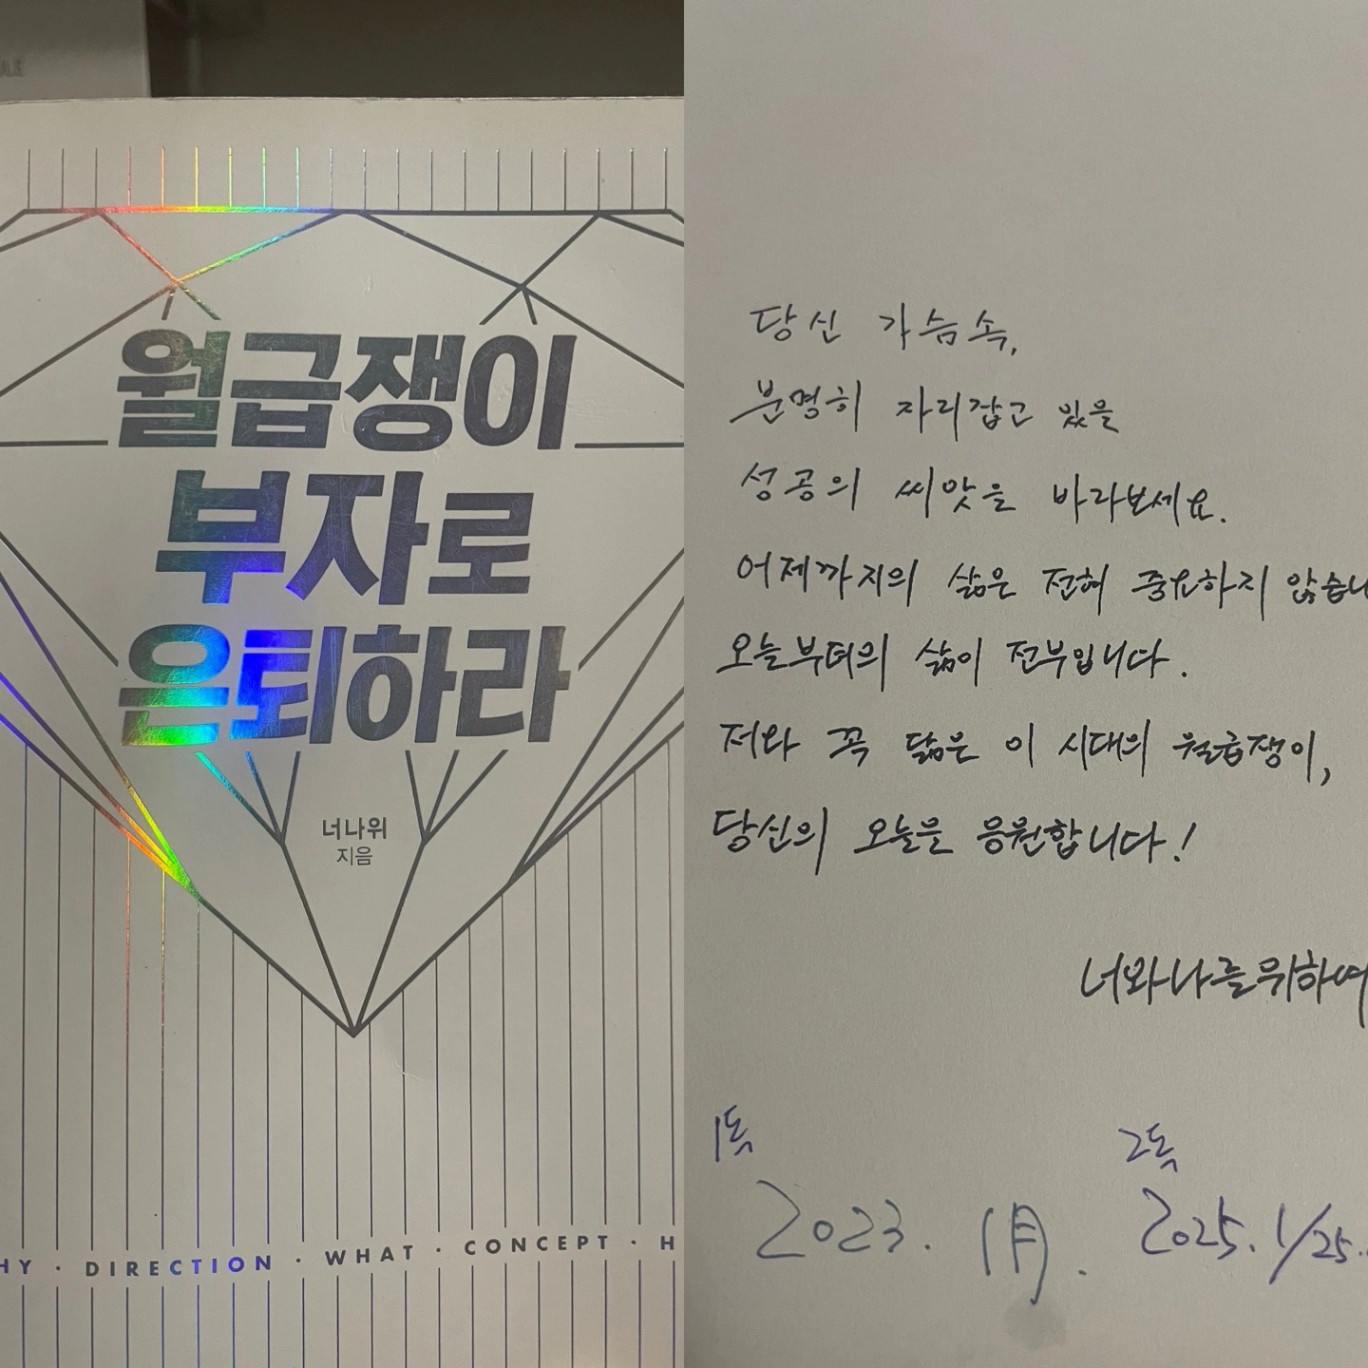 월급쟁이
부자로
은퇴하라
너나위
지음
HY · DIRECTION · WHAT · CONCEPT · H
당신 가슴속,
분명히 자리잡고 있을
성공의 씨앗을 바라보세요.
어제까지의 삶은 전혀 중요하지 않습니
오늘부터의 삶이 전부입니다.
저와 꼭 닮은 이 시대의 월급쟁이,
당신의 오늘을 응원합니다!
너와나를위하여
1독
2023. 1月.
2독
2025. 1/25.